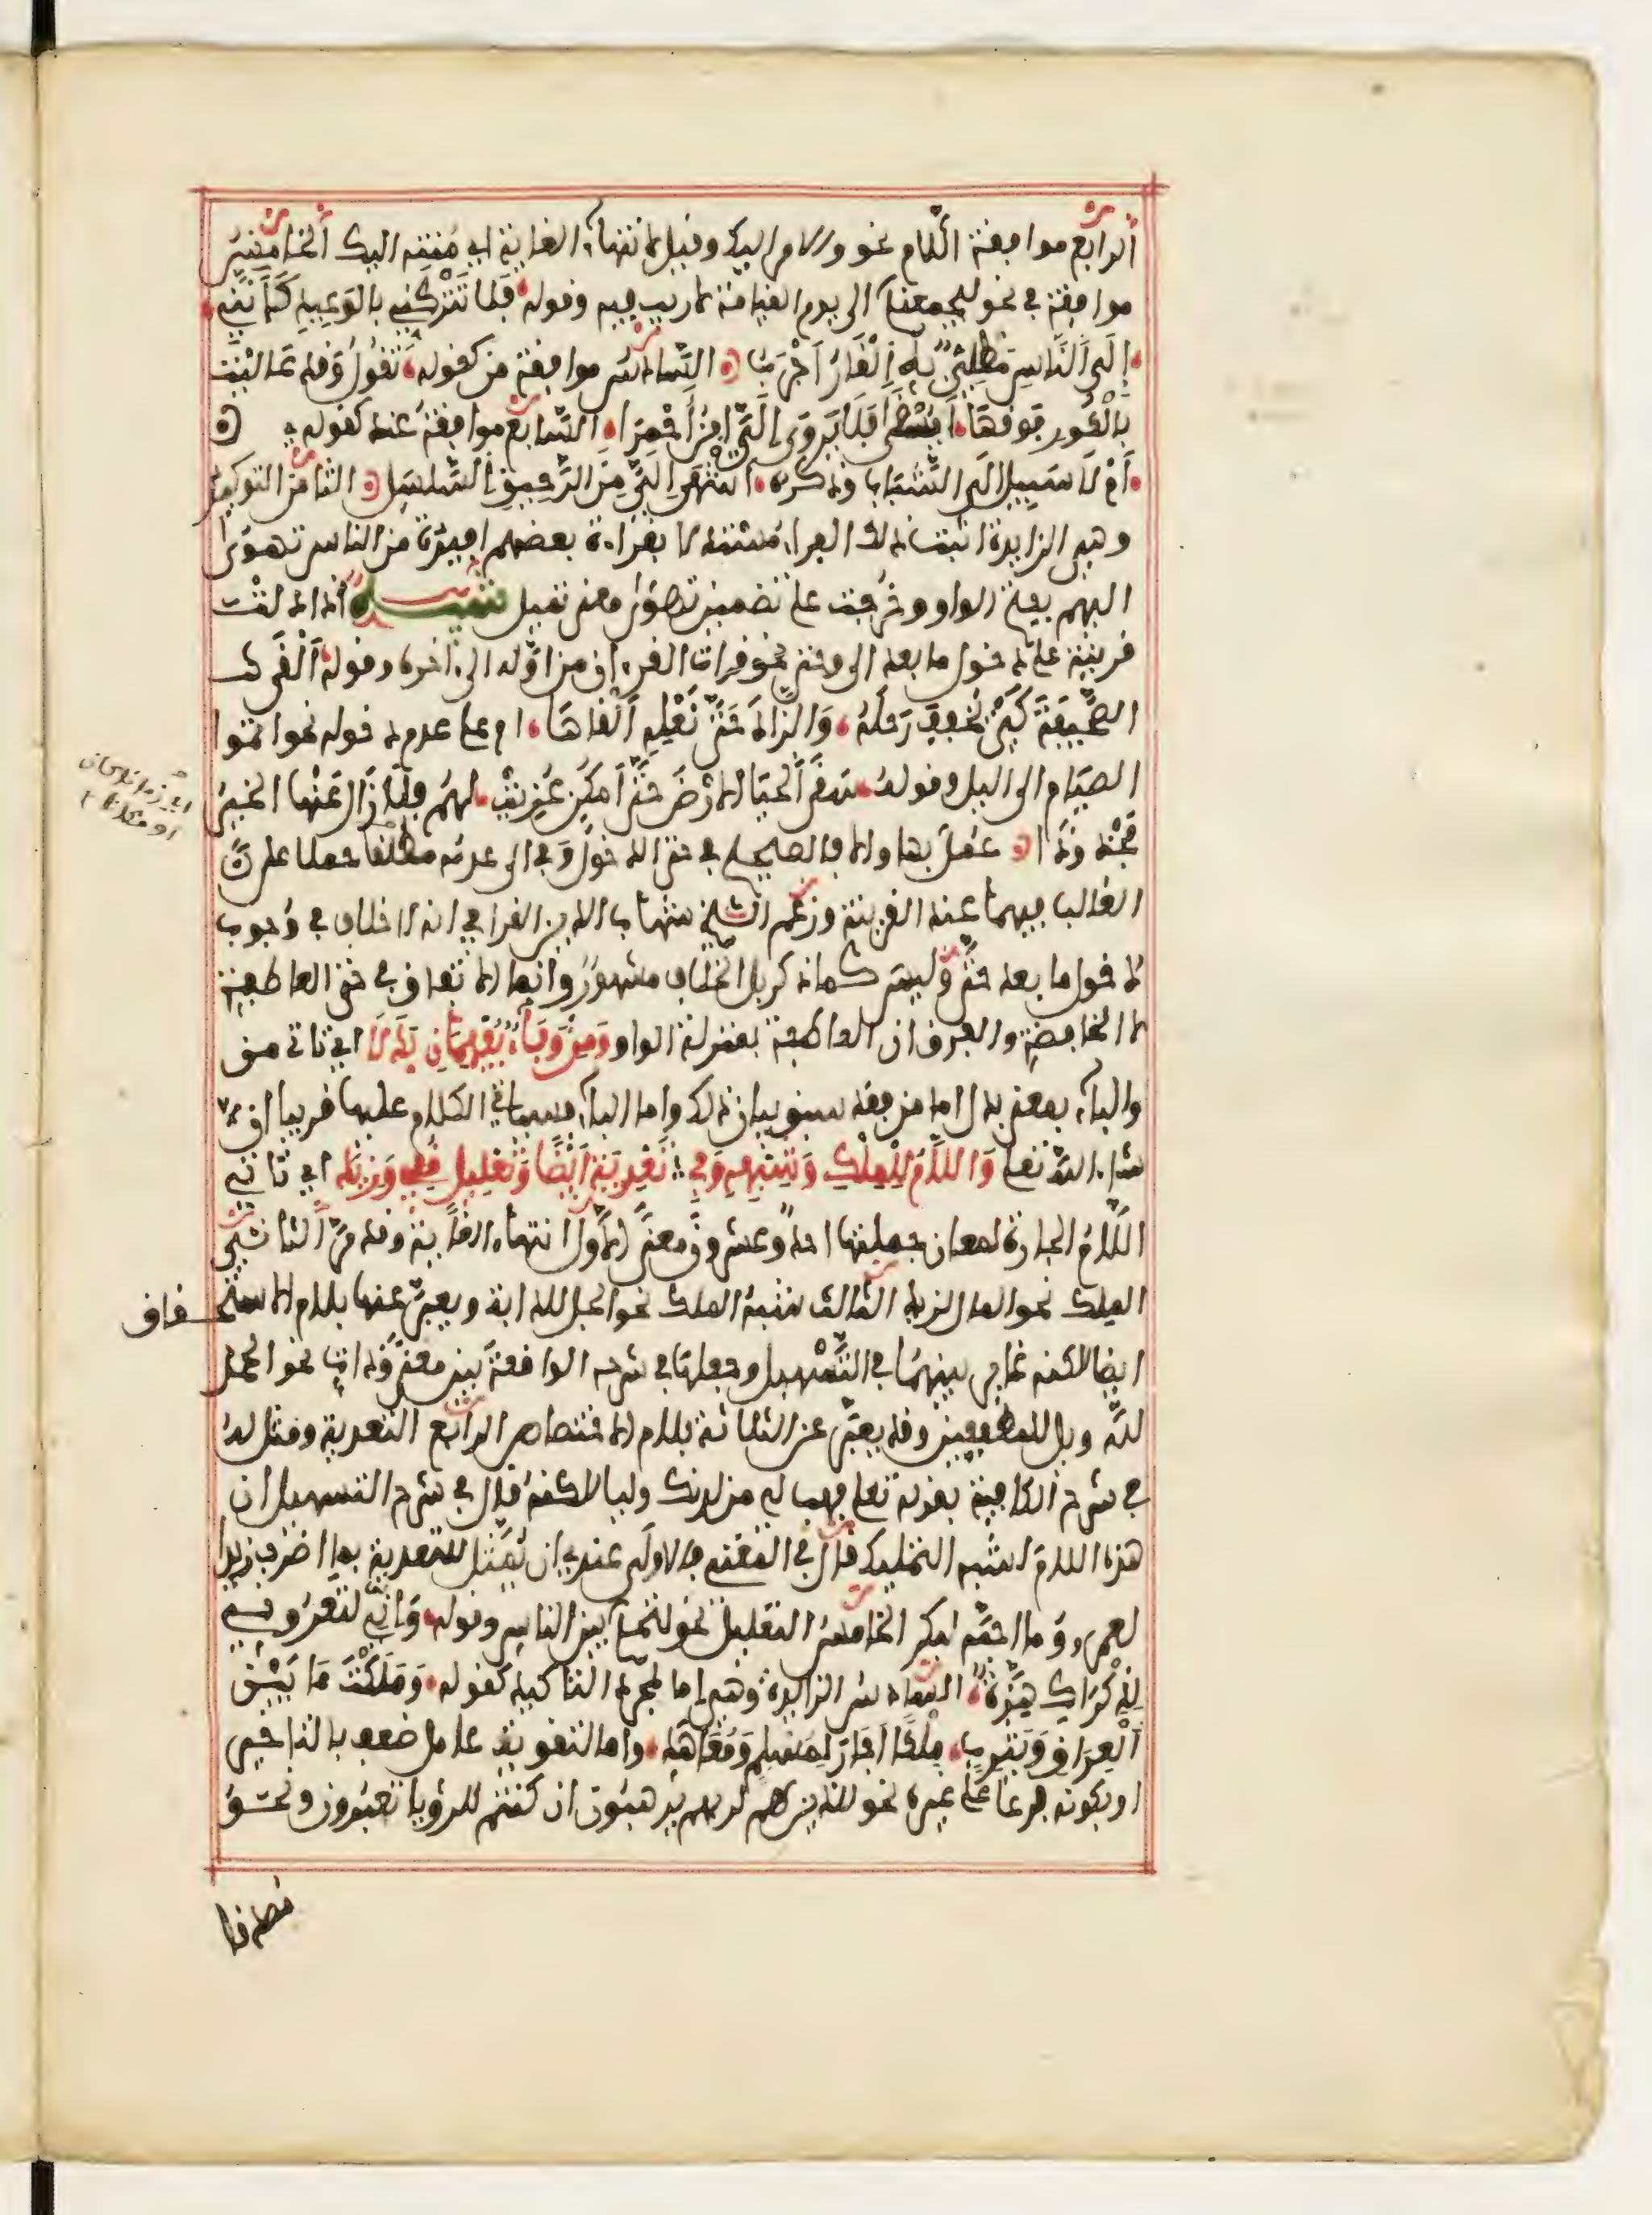 الرابع موافقة اللام نحو والامر اليك وقيل لانتهاء الغاية اي منته اليك الخامس
موافقة في نحو ليجمعنكم الى يوم القيامة لا ريب فيه وقوله فلا تتركني بالوعيد كأنني
إلى الناس مطلي به القار أجرب السادس موافقة من كقوله تقول وقد عاليت
بالكور فوقها أيسقى فلا يروى إلي ابن أحمرا السابع موافقة عند كقوله
أم لا سبيل الى الشباب وذكره أشهى إلي من الرحيق السلسل الثامن التوكيد
وهي الزايدة اثبت ذلك الفراء مستدلا بقراءة بعضهم افيدة من الناس تهوى
اليهم بفتح الواو وخرجت على تضمين تهوى معنى تميل تنبيه ان دلت
قرينة على دخول ما بعد الى وحتى نحو قرات القرءان من اوله الى ءاخره وقوله ألقى
الصحيفة كي يخفف رحله والزاد حتى نعله ألقاها او على عدم دخوله نحو اتموا
الصيام الى اليل وقوله سقى الحيا الارض حتى أمكن عزيت لهم فلا زال عنها الخير
مجدودا عمل بها والا فالصحيح في حتى الدخول وفي الى عدمه مطلقا حملا على
الغالب فيهما عند القرينة وزعم الشيخ شهاب الدين القرافي انه لا خلاف في وجوب
دخول ما بعد حتى وليس كما ذكر بل الخلاف مشهور وانما الاتفاق في حتى العاطفة
لا الخافضة والفرق ان العاطفة بمنزلة الواو ومن وباء يفهمان بدلا اي تاتي من
والباء بمعنى بدل اما من فقد سبق بيان ذلك واما الباء فسياتي الكلام عليها قريبا ان
شاء الله تعلى واللام للملك وشبهه وفي تعدية أيضا وتعليل قفي وزيد اي تاتي
اللام الجارة لمعان جملتها احد وعشرون معنى الاول انتهاء الغاية وقد مر الثاني
الملك نحو المال لزيد الثالث شبه الملك نحو الجل للدابة ويعبر عنها بلام الاستحقاق
ايضا لاكنه غاير بينهما في التسهيل وجعلها في شرحه الواقعة بين معنى وذات نحو الحمد
لله وويل للمطففين وقد يعبر عن الثلاثة بلام الاختصاص الرابع التعدية ومثل له
في شرح الكافية بقوله تعلى فهب لي من لدنك وليا لاكنه قال في شرح التسهيل ان
هذه اللام لشبه التمليك قال في المغني والاولى عندي ان يمثل للتعدية بما اضرب زيدا
لعمرو وما احبه لبكر الخامس التعليل نحو لتحكم بين الناس وقوله واني لتعروني
لذكراك هزة السادس الزايدة وهي إما لمجرد التاكيد كقوله وملكت ما بين
العراق ويثرب ملكا اجار لمسلم ومعاهد واما لتقوية عامل ضعف بالتاخير
او بكونه فرعا على غيره نحو للذين هم لربهم يرهبون ان كنتم للرؤيا تعبرون ونحو
مصدقا